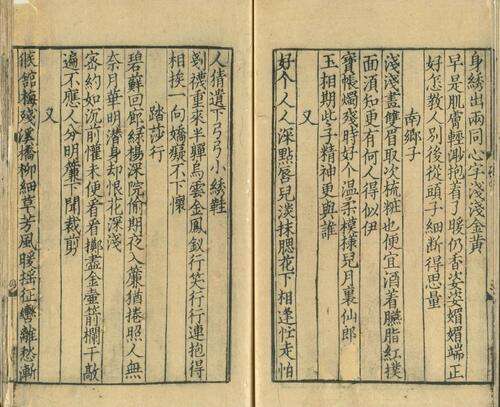 身綉出兩同心字淺淺金黄
早是肌膚輕渺抱着了暖仍香姿姿媚媚端正
好怎教人別後從頭子細斷得思量
南鄉子
淺淺畫雙眉取次梳粧也便宜酒着臙脂紅撲
面須知更有何人得似伊
寳帳燭殘時好个温柔模樣兒月裏仙郎
玉相期此子精神更與誰
又
好个人人深點唇兒淡抹腮花下相逢忙走怕
人猜遺下弓弓小綉鞋
剗襪重來半嚲烏雲金鳳釵行笑行行連抱得
相挨一向嬌癡不下懷
踏莎行
碧蘚回郎緑楊深院偷期夜入簾猶捲照人無
奈月華明潛身却恨花深淺
密約如沉前懽未便看看擲盡金壷箭欄干敲
遍不應人分明簾下聞裁剪
又
候舘梅殘溪橋柳細草芳風暖揺征轡離愁漸